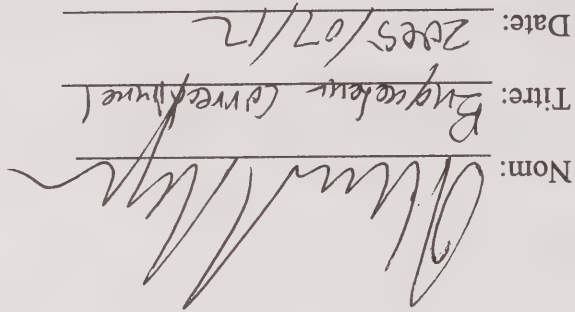 Nom:
Titre: Enquêteur Correctionnel
Date: 2005/07/12